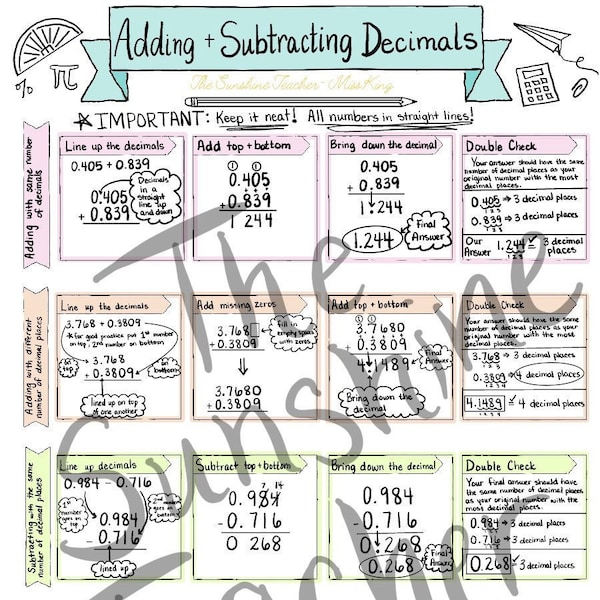 Adding + Subtracting Decimals
The Sunshine Teacher - Miss King
% π
☆ IMPORTANT: Keep it neat! All numbers in straight lines!
Adding with same number
of decimals
Line up the decimals
0.405 + 0.839
0.405
+ 0.839
Decimals
in a
straight
line up
and down
Add top + bottom
1 1
0.405
+ 0.839
1 244
Bring down the decimal
0.405
+ 0.839
1.244
1.244
Final
Answer
Double Check
Your answer should have the same
number of decimal places as your
original number with the most
decimal places.
0.405 ⇒ 3 decimal places
1 2 3
0.839 ⇒ 3 decimal places
1 2 3
Our
Answer
1.244 = 3 decimal
places
1 2 3
Adding with different
number of decimal places
Line up the decimals
3.768 + 0.3809
*for good practice put 1st number
on top, 2nd number on bottom*
on
top
3.768
+ 0.3809
on
bottom
lined up on top
of one another
Add missing zeros
3.768
+ 0.3809
Fill in
empty spots
with zeros
3.7680
+ 0.3809
Add top + bottom
1 1
3.7680
+ 0.3809
4.1489
Final
Answer
Bring down the
decimal
Double Check
Your answer should have the same
number of decimal places as your
original number with the most
decimal places.
3.768 ⇒ 3 decimal places
1 2 3
0.3809 ⇒ 4 decimal places
1 2 3 4
4.1489 = 4 decimal places
1 2 3 4
Subtracting with the same
number of decimal places
Line up decimals
0.984 - 0.716
1st
number
goes on
top
2nd
number
goes on
bottom
0.984
- 0.716
lined up
Subtract top + bottom
7 14
0.984
- 0.716
0 268
Bring down the decimal
0.984
- 0.716
0.268
0.268
Final
Answer
Double Check
Your final answer should have
the same number of decimal places
as your original number with the
most decimal places.
0.984 ⇒ 3 decimal places
1 2 3
0.716 ⇒ 3 decimal places
1 2 3
0.268 = 3 decimal
places
1 2 3
The
Sunshine
Teacher